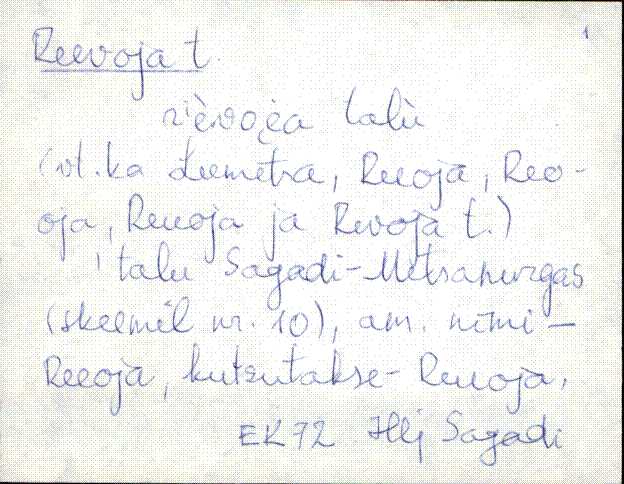 1
Reevoja t.
rièvoẹ̀a talù
(vt. ka Leemetra, Reeoja, Reo-
oja, Reuoja ja Revoja t.)
talu Sagadi-Metsanurgas
(skeemil nr. 10), am. nimi -
Reeoja, kutsutakse - Reuoja.
EK 72 Hlj Sagadi